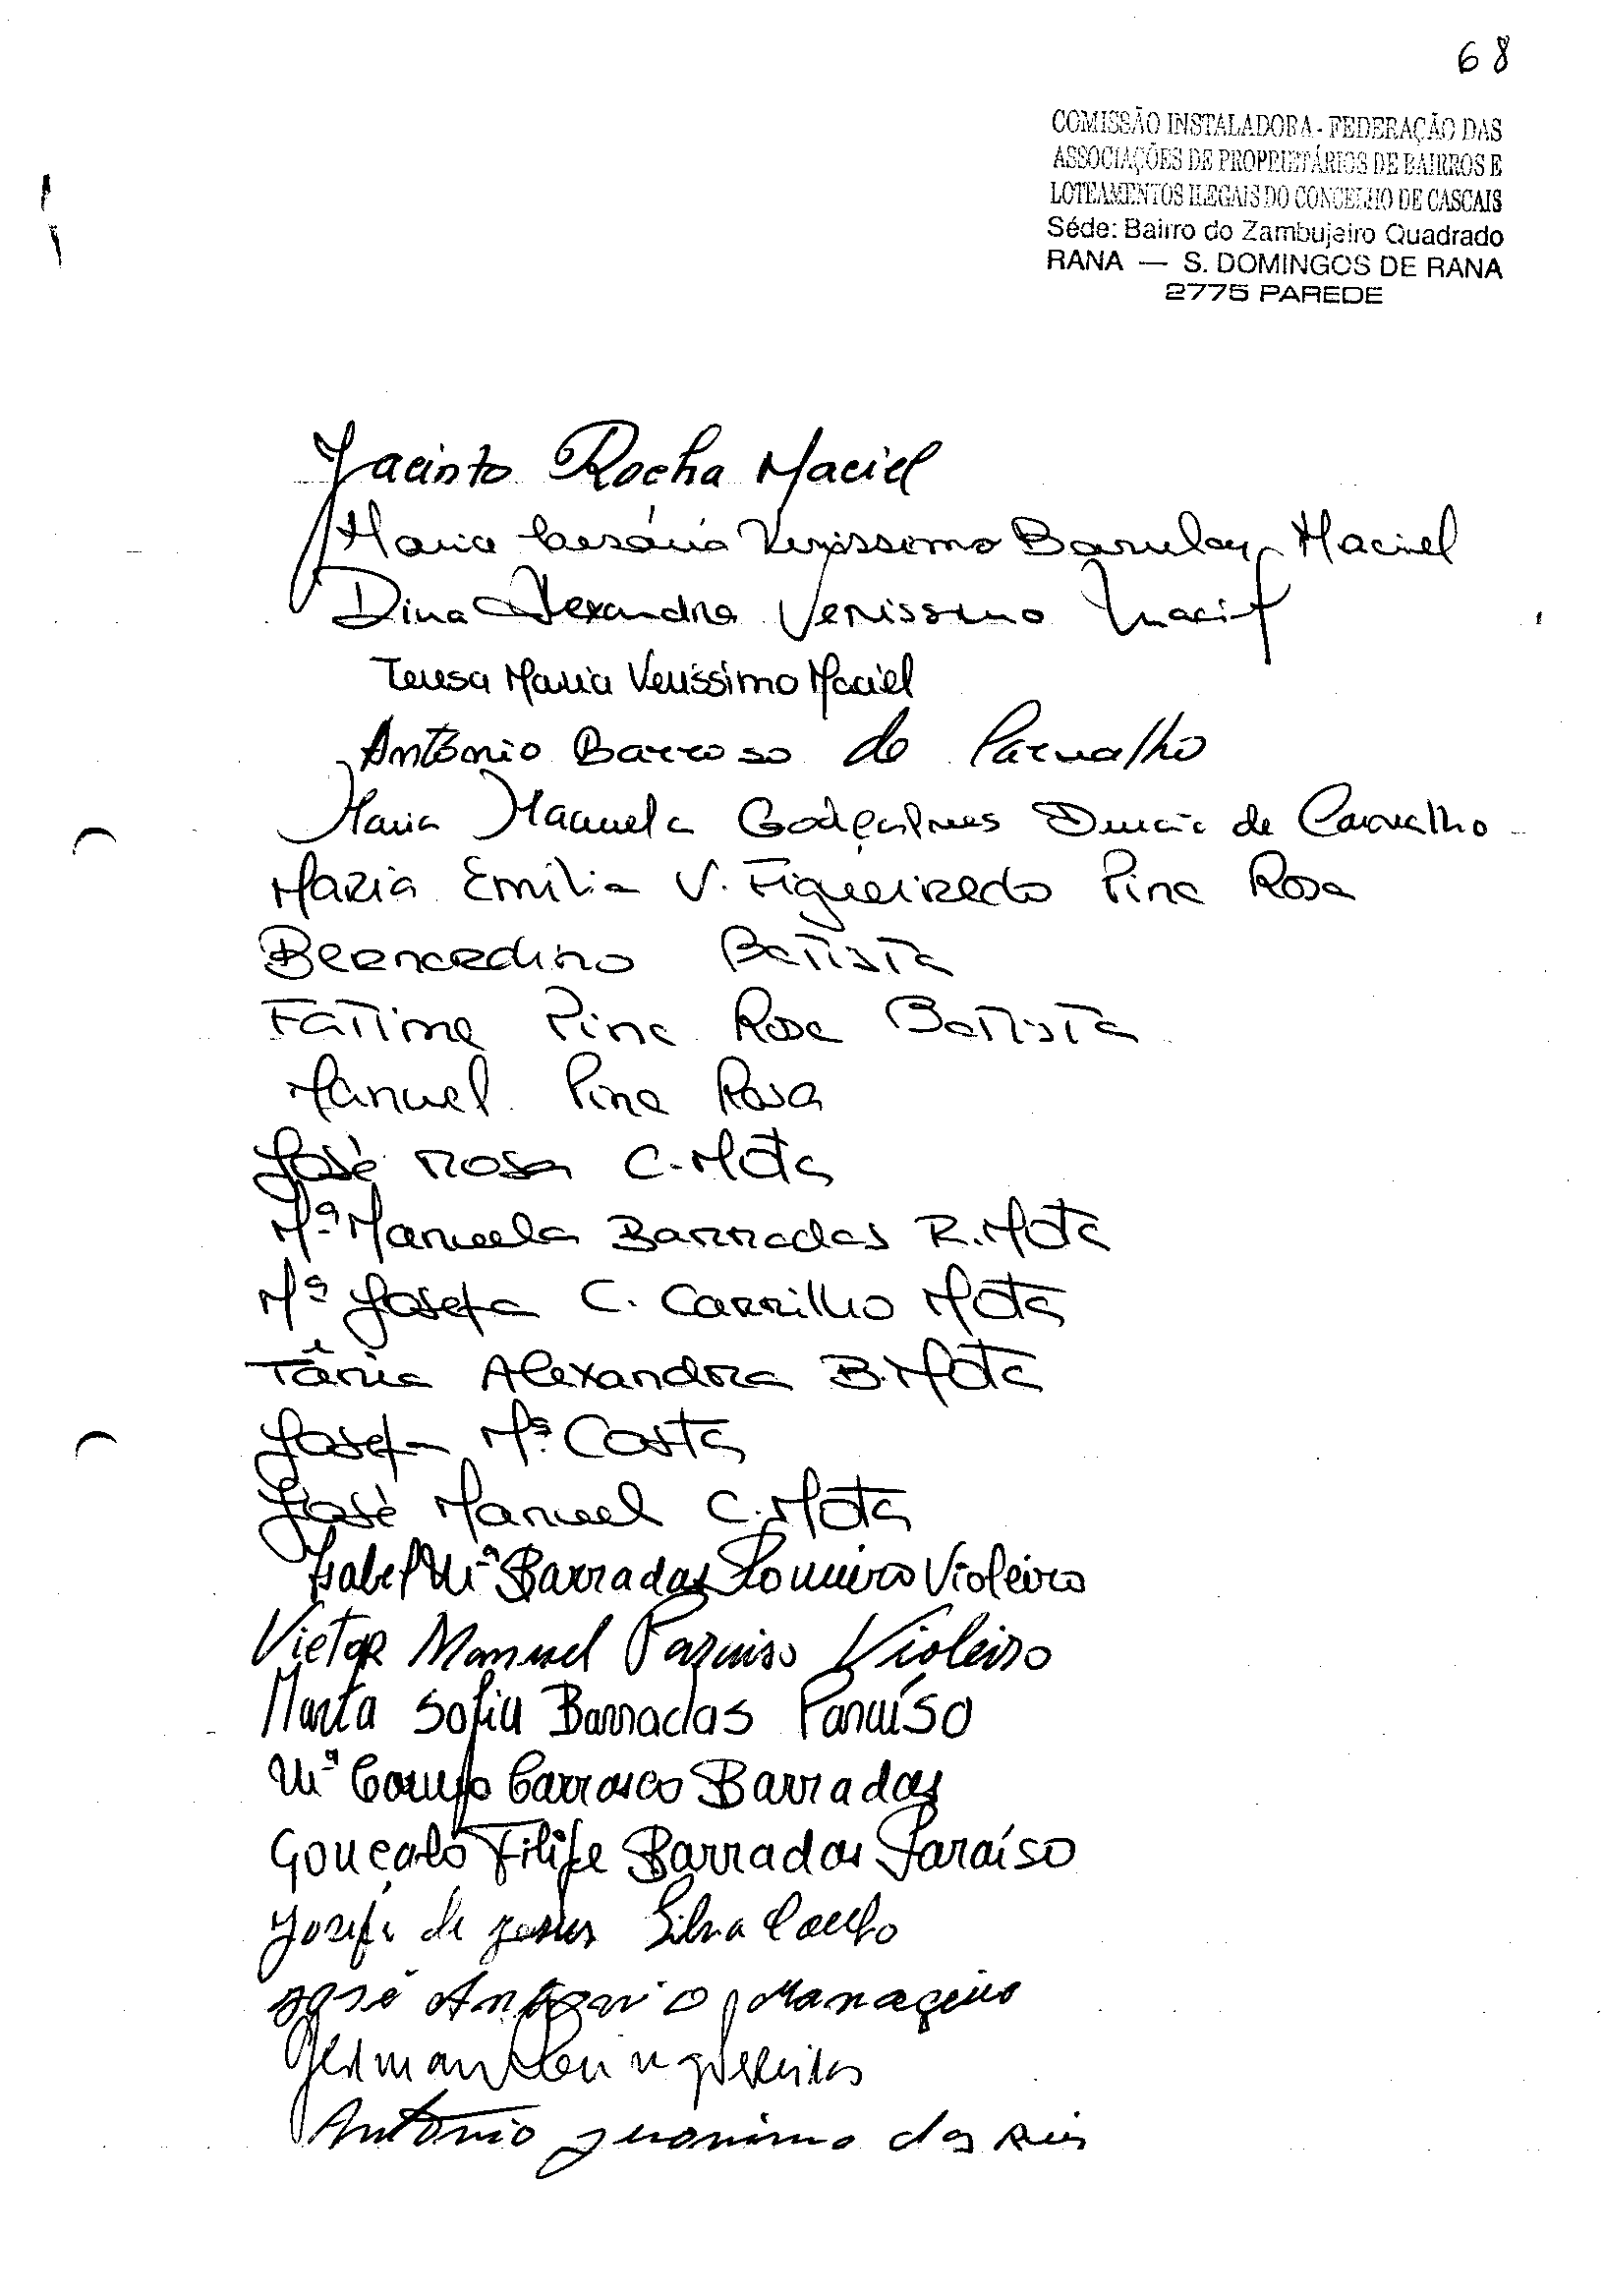 68
COMISSÃO INSTALADORA - FEDERAÇÃO DAS
ASSOCIAÇÕES DE PROPRIETÁRIOS DE BAIRROS E
LOTEAMENTOS ILEGAIS DO CONCELHO DE CASCAIS
Séde: Bairro do Zambujeiro Quadrado
RANA — S. DOMINGOS DE RANA
2775 PAREDE
Jacinto Rocha Maciel
Maria Cesária Verissemo Maciel
Dina Alexandra Verissimo Maciel
Teresa Maria Veríssimo Maciel
António Barroso de Carvalho
Maria Manuela Gonçalves de Carvalho
Maria Emilia V. Figueiredo Pina Rosa
Bernardino Batista
Fatima Pina Rosa Batista
Manuel Pina Rosa
José Rosa C. Mota
Mª Manuela Barradas R. Mota
Mª Josefa C. Carrilho Mota
Tânia Alexandra B. Mota
Josefa Mª Costa
José Manuel C. Mota
Isabel Mª Barradas Romeiro Violeiro
Victor Manuel Paraiso Violeiro
Marta Sofia Barradas Paraíso
Mª Carrasco Barradas
Gonçalo Filipe Barradas Paraíso
Josefa de Jesus Silva Coelho
José António Manageiro
António Jeronimo dos Reis